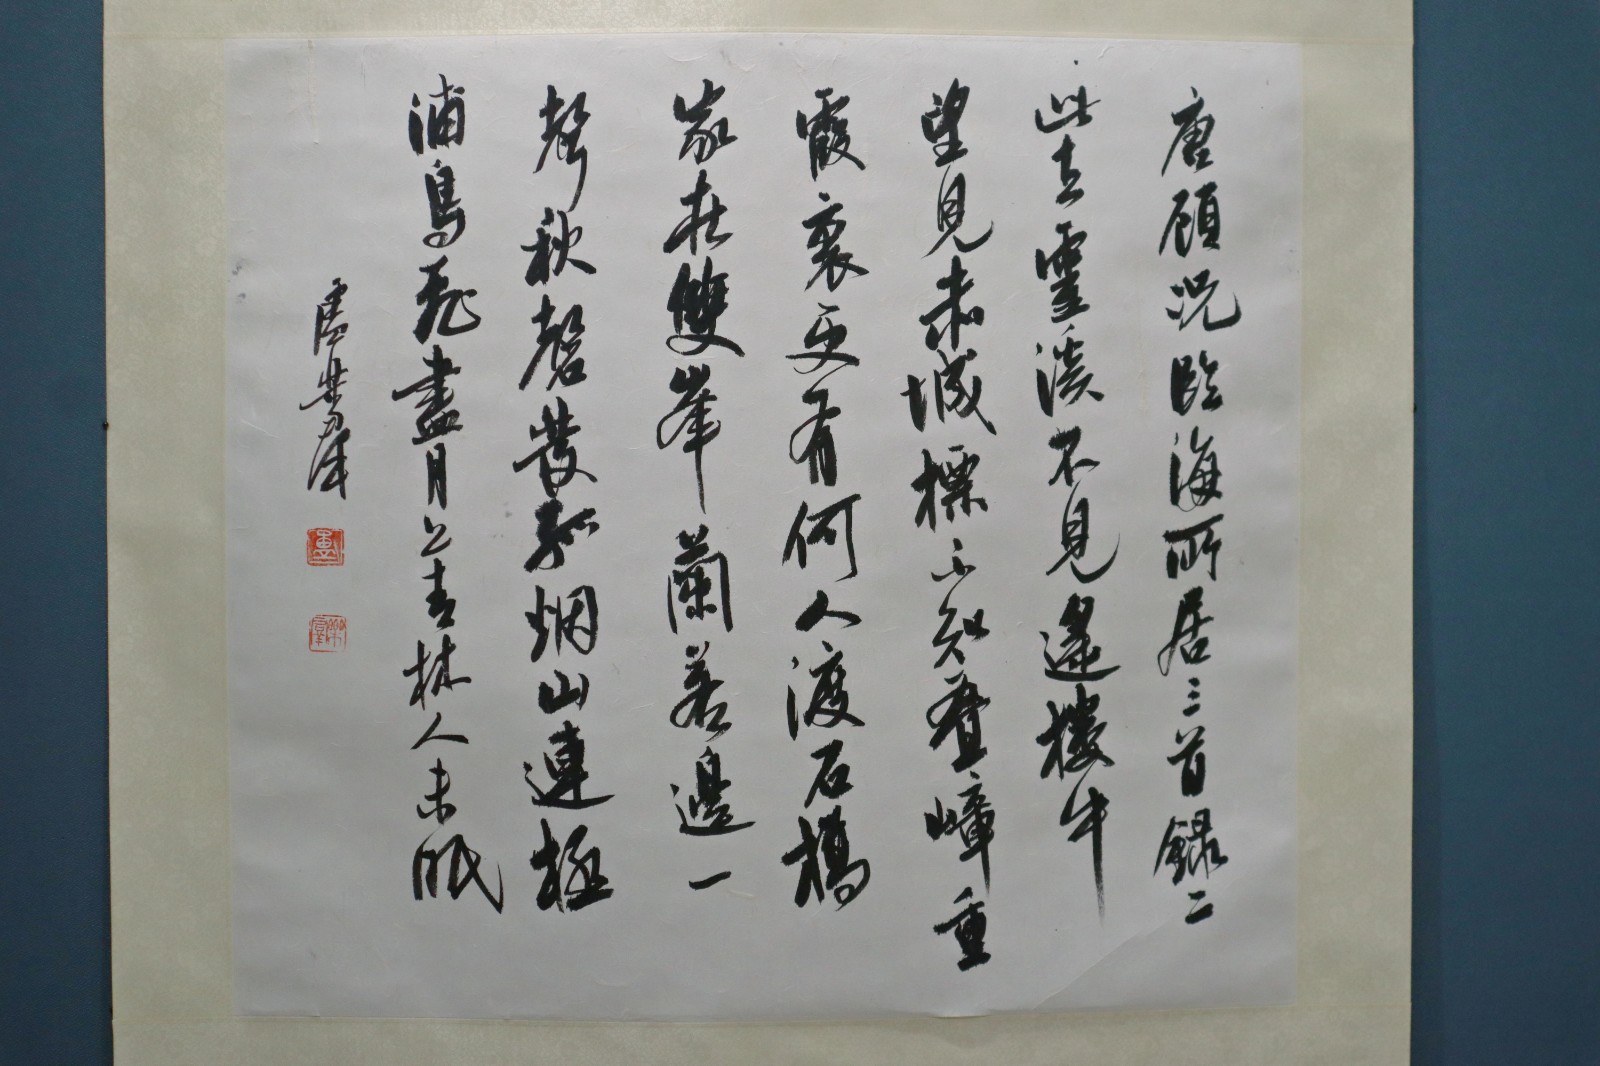 唐顧况臨海所居三首録二
此去靈溪不見遥樓中
望見赤城標不知疊嶂重
霞裏更有何人渡石橋
家在雙峯蘭若邊一
聲秋磬發孤烟山連極
浦鳥飛盡月上青林人未眠
盧樂群